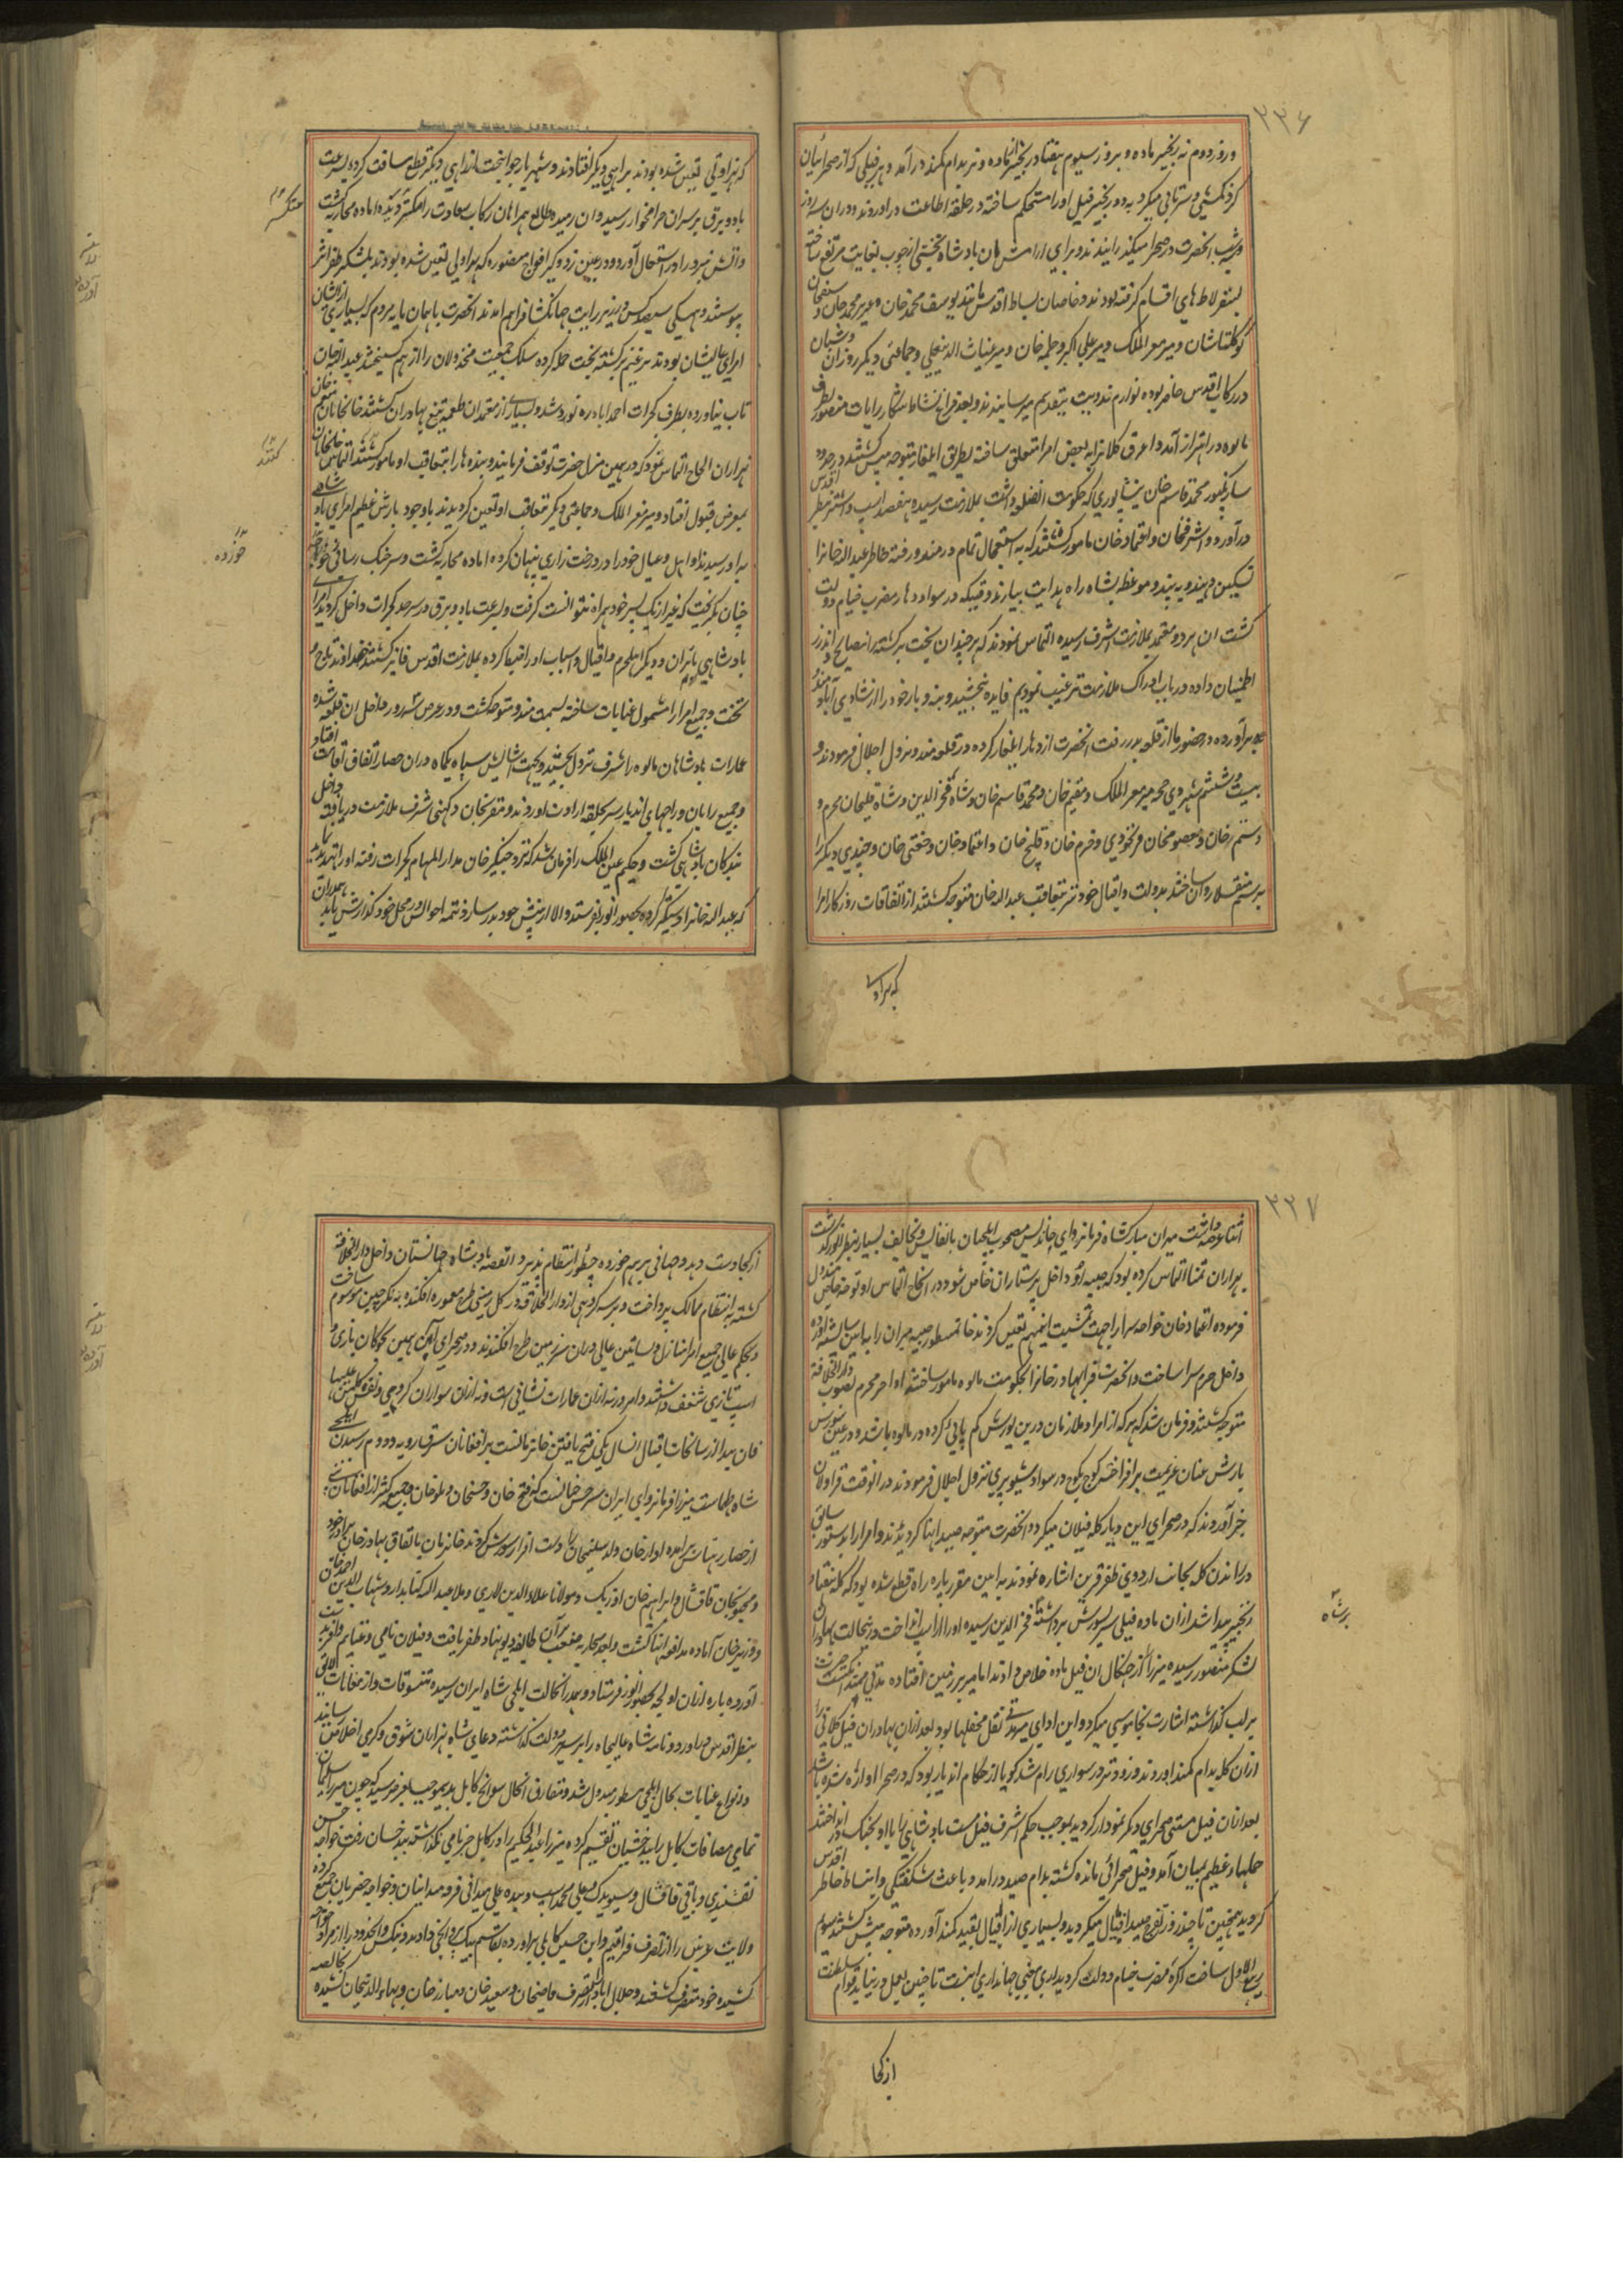 ۲۲۶
و روز دوم نه زنجیر ماده و بروز سیوم هفتاد زنجیر ماده و نر بدام کمند درآمد و هر فیلی که از صحرائیان
گردنکشی و سرتابی میکرد به دو زنجیر فیل اورا مستحکم ساخته در حلقه اطاعت درآوردند و دران سه روز
و شب انحضرت در صحرا میگذرانیدند و برای ارامش ان بادشاه تختی از چوب بغایت مرتفع ساخته
بسقرلاط های اقسام گرفته بودند و خاصان بساط اقدس مانند یوسف محمد خان و عزیز محمد خان و سیفخان
کوکلتاشان و میر معز الملک و میر علی اکبر و حلمه خان و میر غیاث الدینعلی و جماعتی دیگر روزان و شبان
در رکاب اقدس حاضر بوده لوازم ندویت بتقدیم میرسانیدند و بعد فراغ نشاط شکار رایات منصور بطرف
مالوه در اهتزاز آمد و اعرق کلانرا به بعض امرا متعلق ساخته بطریق ایلغار متوجه پیش گشتند در حدود
سارنگپور محمد قاسم خان نیشاپوری که حکومت انضلع داشت بملازمت رسیده هفصد اسپ و استر بنظر اقدس
درآورد و اشرفخان و اعتماد خان مامور گشتند که به استعجال تمام در مندو رفته خاطر عبد اله خانرا
تسکین دهند و به پند و موعظه بشاه راه هدایت بیارند وقتیکه در سواد دهار مضرب خیام دولت
گشت ان هر دو معتمد بملازمت اشرف رسیده التماس نمودند که هر چند ان بخت برگشته را نصایح و اندرز
اطمینان داده در باب ادراک ملازمت ترغیب نمودیم فایده نبخشید و بنه و بار خود را از شادی آباد مندو
برآورده در حضور ما از قلعه بدر رفت انحضرت از دهار ایلغار کرده در قلعه مندو نزول اجلال فرمودند و
بیست و ششم شهر ذی حجه میر معز الملک و مقیم خان و محمد قاسم خان و شاه فخر الدین و شاه قلیخان محرم و
دستم خان و معصومخان فرنخودی و خرم خان و قلیج خان و اعتماد خان و ختی خان و چندی دیگر را
برسم منقلا روان ساختند بدولت و اقبال خود نیز بتعاقب عبد اله خان متوجه گشتند از اتفاقات روزگار امرا
که هراولی
که بهراولی تعین شده بودند براهی دیگر افتادند و شهریار جوانبخت از راهی دیگر قطع مسافت کرده بسرعت
باد و برق بر سران حرامخوار رسید و ان رمیده طالع همراهان رکاب سعادت را کمتر دیده اماده محاربه گشت
و اتش نبرد را در اشتعال آورد و در عین زد و گیر افواج منصوره که بهراولی تعین شده بودند بلشکر ظفر اثر
پیوستند و همگی سیصد کس در زیر رایت جهانگشا فراهم امدند انحضرت با همان پایه مردم که بسیاری از ایشان
امرای عالیشان بودند بر غنیم برگشته بخت حمله کرده سلک جمعیت مخذولان را از هم گسیختند عبد اله خان
تاب نیاورده بطرف گجرات احمداباد ره نورد شد و بسیاری از معتمدان طعمه تیغ بهادران گشتند خانخانان منعم خان
بهزاران الحاح التماس نمود که در همین منزل حضرت توقف فرمایند و بنده ها را بتعاقب او مامور گشتند التماس خانخانان
بمعرض قبول افتاد و میر معز الملک و جماعتی دیگر بتعاقب او تعین گردیدند باوجود بارش عظیم امرای بادشاهی
به او رسیدند او اهل و عیال خود را در درخت زاری پنهان کرده اماده محاربه گشت و سر جنگ رسائی
چنان گریخت که غیر از یک پسر خود همراه نتوانست گرفت و بسرعت باد و برق در سرحد گجرات داخل گردید امرای
بادشاهی با زنان و دیگر اهل حرم و افیال و اسباب او را ضبط کرده بملازمت اقدس فائز گشتند خداوند تاج و
تخت و جمیع امرا را مشمول عنایات ساخته لسمت مندو متوجه گشت و در عرض سه روز داخل ان قلعه شده
عمارات بادشاهان مالوه را شرف نزول بخشید و بجهت اسایش سپاه یکماه دران حصار اتفاق اقامت افتاد
و جمیع رایان و راجهای اندیار سر بحلقه ارادت آوردند و مقربخان دکهنی اشرف ملازمت دریافته داخل
بندگان بادشاهی گشت و حکیم عین الملک را فرمان شد که نزد چنگیز خان مدار المهام گجرات رفته او را تهدید نماید
که عبد اله خانرا دستگیر کرده بحضور انور بفرستد و الا از پیش خود بدر سازد تتمه احوالش در محل خود گذارش یابد
۲۲۷
اثنا عرضداشت میران مبارکشاه فرمانروای خاندیس مصحوب ایلچیان با نفایس و تحایف بسیار بنظر انور گذشت
بهزاران تمنا التماس کرده بود که صبیه او داخل پرستاران خاص شود در انحال التماس او توجه خاص مبذول
فرموده اعتماد خان خواجه سرا را جهت تمشیت اینمهم تعین کردند خانمسطور صبیه میران را بایین شایسته آورده
داخل حرم سرا ساخت و انحضرت قرابهادر خانرا بحکومت مالوه مامور ساختند اواخر محرم بصوب دارالخلافة
متوجه گشتند و فرمان شد که هر که از امرا و ملازمان درین یورش کم پائی کرده در مالوه باشد و در عین شورش
بارش عنان عزیمت برافراختند کوچ بکوچ در سواد شیوپری نزول اجلال فرمودند در انوقت قراولان
خبر آوردند که در صحرای این دیار گله فیلان میگردد انحضرت متوجه صید انها گردیدند و امرا را بدستور سابق
در راندن گله بجانب اردوی ظفر قرین اشاره نمودند به ایین مقرر پاره راه قطع شده بود که گله هفتاد
زنجیر پیدا شد ازان ماده فیلی سر بشورش برداشته فخر الدین رسیده او را از اسپ انداخت درینحالت بهادران
لشکر منصور رسیده میرزا را از چنگال ان فیل ماده خلاص دادند اما میر بر زمین افتاده مدتی
بر لب گذاشته اشارت بخاموشی میکرد و این ادای میر مدتی نقل محفلها بود بعد ازان بهادران فیل کلانی را
ازان گله بدام کمند آوردند و زود تر در سواری رام شد گویا از حکام اندیار بود که در صحرا اواره شده باشد
بعد ازان فیل مستی صحرای دیگر نمودار گردید بموجب حکم اشرف فیل مست بادشاهی را با او بجنگ در انداختند
حملهای عظیم بمیان آمد و فیل صحرائی مانده گشته بدام صید درامد و باعث شگفتگی و انبساط خاطر اقدس
گردید همچنین تا چند روز تفرج صید افیال میکردید و بسیاری از افیال بقید کمند آورده متوجه پیش گشتند سیوم
ربیع الاول ساخت آگره مضرب خیام دولت گردید اری معنی جهانداری اینست تا چنین بعمل در نیاید قوام سلطنت
از کجا
از کجا دست دهد و جهانی برهم خورده چطور انتظام پذیرد القصه بادشاه جهانستان داخل دارالخلافة
گشته به انتظام ممالک پرداخت و بر سه کروهی از دارالخلافة در گل زمینی طرح معموره افکنده به نگرچین موسوم ساخت
و بحکم عالی جمیع امرا منازل و بساتین عالی دران سرزمین طرح افکندند و در صحرای
اسپ تازی شغف داشتند و امروز نه ازان عمارات نشانی است و نه ازان سواران گروهی
فان بعد از سانحات اقبال انسال یکی فتح یافتن خانزمانست بر افغانان سرقبارویه و دوم رسیدن ایلچی
شاه طهماسب میرزا فرمانروای ایران شرحش چنانست که فتح خان و حسنخان و ملوخان و جمع کثیر از افغانان
از حصار رهتاس برامده اولاد خان ولد سلیمخان را دست افزار شورش کردند خانزمان باتفاق بهادر خان برادر خود
و مجنونخان قاقشال و ابراهیم خان اوزبک و مولانا علاؤ الدین لاری و ملا عبد اله کتابدار و شهاب الدین احمد خان
و وزیر خان آماده مدافعه انها گشت و بعد محاربه صعب بران طایفه دیو نهاد ظفر یافت و فیلان نامی و غنایم وافر بدست
آورده پاره ازان اولجه بحضور انور فرستاد و همدرانحالت ایلچی شاه ایران رسیده تنسوقات و ارمغانات لایق
بنظر اقدس درآورد و نامه شاه عالیجاه را بر سریر دولت گذاشته دعای شاه بهزاران شوق و گرمی اخلاص رسانید
و انواع عنایات بحال ایلچی مسطور مبذول شد و مقارن انحال سوانح کابل بدینموجب بعرض رسید که چون میرزا سلیمان
تمامی مضافات کابل را ببدخشیان تقسیم کرده میرزا عبد الحکیم را در کابل جز نامی نگذاشته ببدخشان رفت خواجه حسن
نقشبندی و باقی قاقشال و سیوندک و علی محمد اسپ و بنده علی میدانی فرود میدانیان و خواجه خضریان جمع کرده
ولایت غزنین را از تصرف
کشیده خود متصرف گشتند و جلال اباد را از تصرف قاضیخان و سعید خان و مبارز خان و بهاء الدینخان کشیده